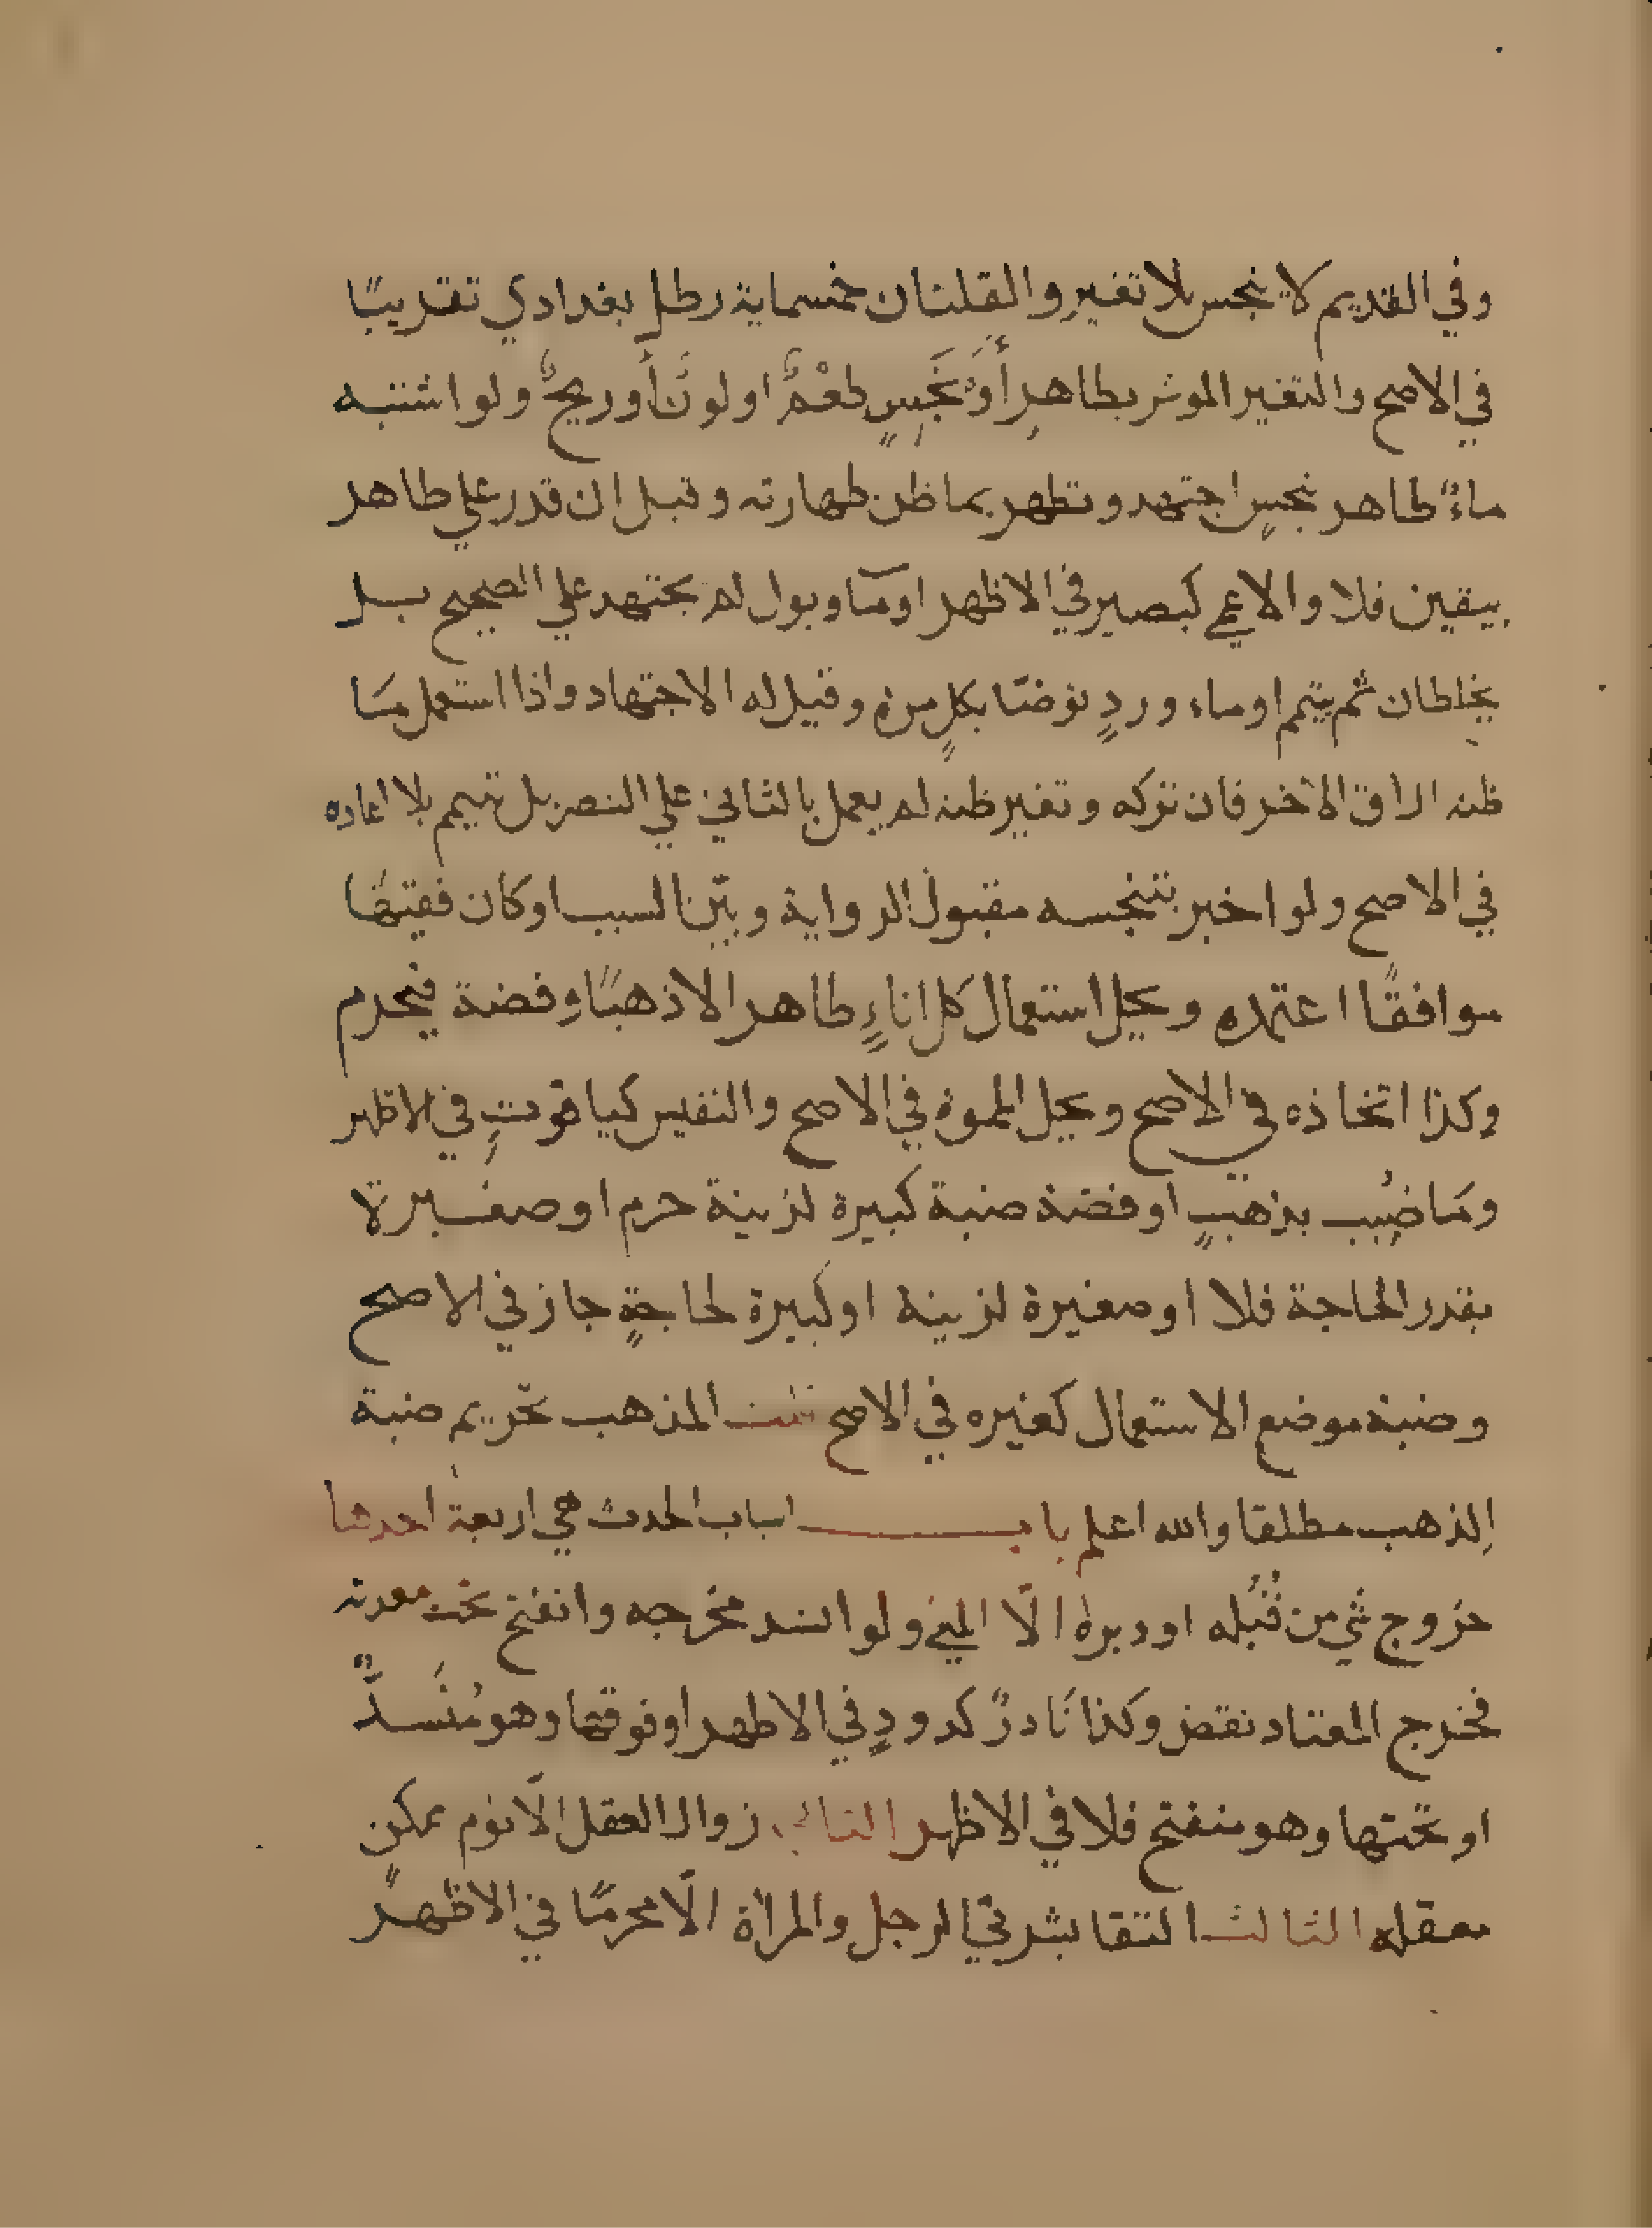 وفي القديم لا ينجس بلا تغير والقلتان خمسماية رطل بغدادي تقريبًا
في الاصح والتغير الموثر بطاهرٍ أَوْ نَجِسٍ طعْمٌ او لونٌ أو ريحٌ ولو اشتبه
ماءٌ طاهر بنجسٍ اجتهد وتطهر بما ظن طهارته وقيل ان قدر علي طاهر
بيقين فلا والاعمي كبصير في الاظهر او مآ وبول لم يجتهد علي الصحيح بل
يخلطان ثم يتيمم او ماء وردٍ توضّا بكلٍ مرة وقيل له الاجتهاد واذا استعمل مَا
ظنه اراق الاخر فان تركه وتغير ظنه لم يعمل بالثاني علي النص بل تيمم بلا اعاده
في الاصح ولو اخبر بتنجسه مقبول الرواية وبيّن السبب او كان فقيهًا
موافقًا اعتمده ويحل استعمال كل اناءٍ طاهر الا ذهبًا وفضة فيحرم
وكذا اتخاذه في الاصح ويحل المموه في الاصح والنفيس كياقوتٍ في الاظهر
ومَا ضُبِب بذهبٍ او فضة ضبة كبيرة لزينة حرم او صغيرة
بقدر الحاجة فلا او صغيرة لزينة او كبيرة لحاجةٍ جاز في الاصح
وضبة موضع الاستعمال كغيره في الاصح قلت المذهب تحريم ضبة
الذهب مطلقا والله اعلم باب اسباب الحدث هي اربعة احدها
خروج شي من قُبُله او دبره الّا المني ولو انسد مخرجه وانفتح تحت معدته
فخرج المعتاد نقض وكذا نَادرٌ كدودٍ في الاظهر او فوقها وهو مُنْسَدٌّ
او تحتها وهو منفتح فلا في الاظهر الثاني زوال العقل الّا نوم ممكن
مقعده الثالث التقا بشرتي الرجل والمرأة الّا محرمًا في الاظهر